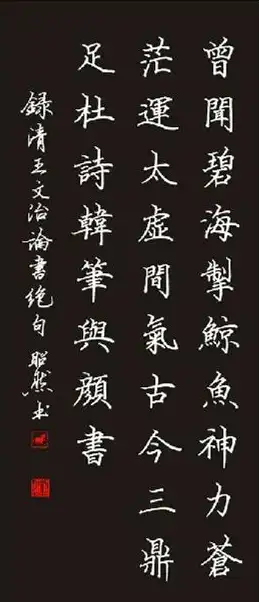 曾聞碧海掣鯨魚神力蒼
茫運太虛間氣古今三鼎
足杜詩韓筆與顏書
録清王文治論書絶句 昭然书